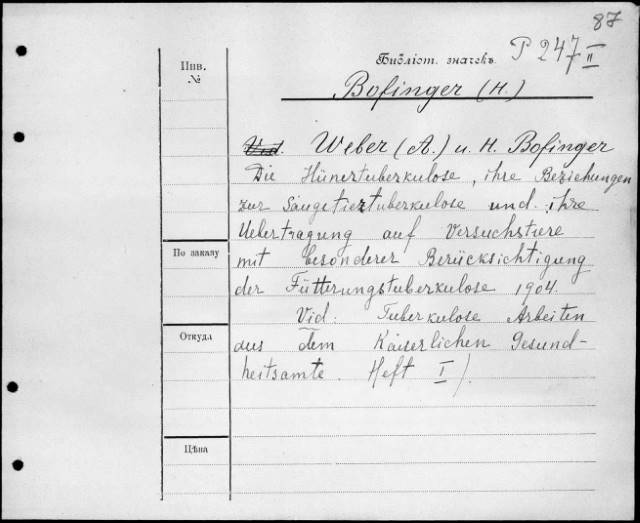 87
Инв.
№
Библіот. значекъ. P 247 II
Bofinger (H.)
Vid. Weber (A.) u. H. Bofinger
Die Hünertuberkulose, ihre Beziehungen
zur Säugetiertuberkulose und ihre
Uebertragung auf Versuchstiere
По заказу
mit besonderer Berücksichtigung
der Fütterungstuberkulose 1904.
Vid: Tuberkulose Arbeiten
Откуда
aus dem Kaiserlichen Gesund-
heitsamte. Heft I).
Цѣна